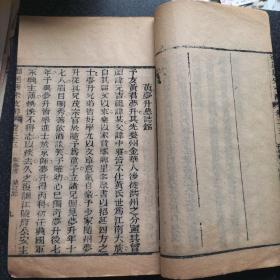 黃夢升墓誌銘
予友黃君夢升其先婺州金華人後徙洪州之分寧其曾
祖諱元吉祖諱某父諱中雅皆不仕黃氏世為江南大族
自其祖父以來樂以家貲賑鄉里多聚書以招延四方之
士夢升兄弟皆好學尤以文章意氣自豪予少家隨州夢
升從其兄茂宗官于隨予為童子立諸兄側見夢升年十
七八眉目明秀善飲酒談笑予雖幼心已獨奇夢升後七
年予與夢升皆舉進士於京師夢升得丙科初任興國軍
永興主簿怏怏不得志以疾去久之復調江陵府公安主